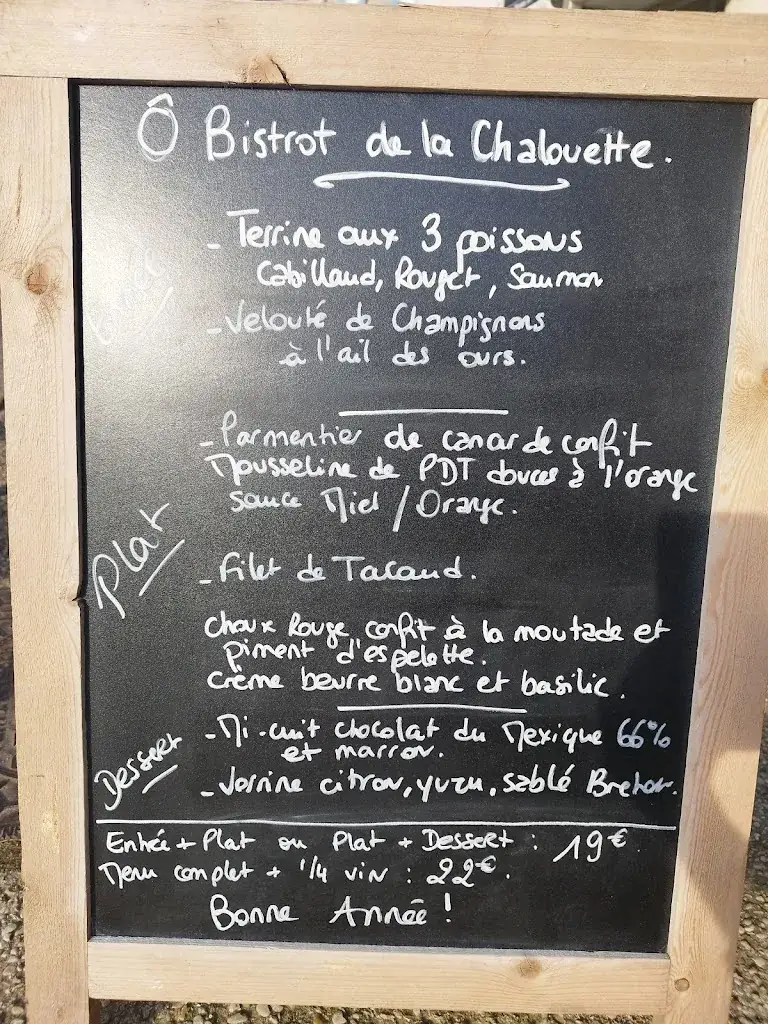 Ô Bistrot de la Chalouette.
- Terrine aux 3 poissons
Cabillaud, Rouget, Saumon
Entrée
- Velouté de Champignons
à l'ail des ours.
- Parmentier de canar de confit
Mousseline de PDT douces à l'orange
sauce Miel / Orange.
Plat
- Filet de Tacaud.
choux Rouge confit à la moutade et
piment d'espelette.
crème beurre blanc et basilic.
- Mi-cuit chocolat du Mexique 66%
et marron.
Dessert
- Verrine citron, yuzu, sablé Breton.
Entrée + Plat ou Plat + Dessert : 19€
Menu complet + 1/4 vin : 22€.
Bonne Année !